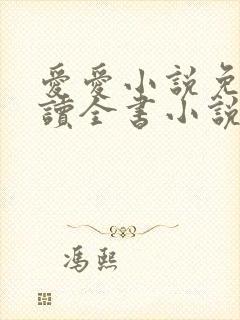 愛愛小說免
讀全書小說
馮熙